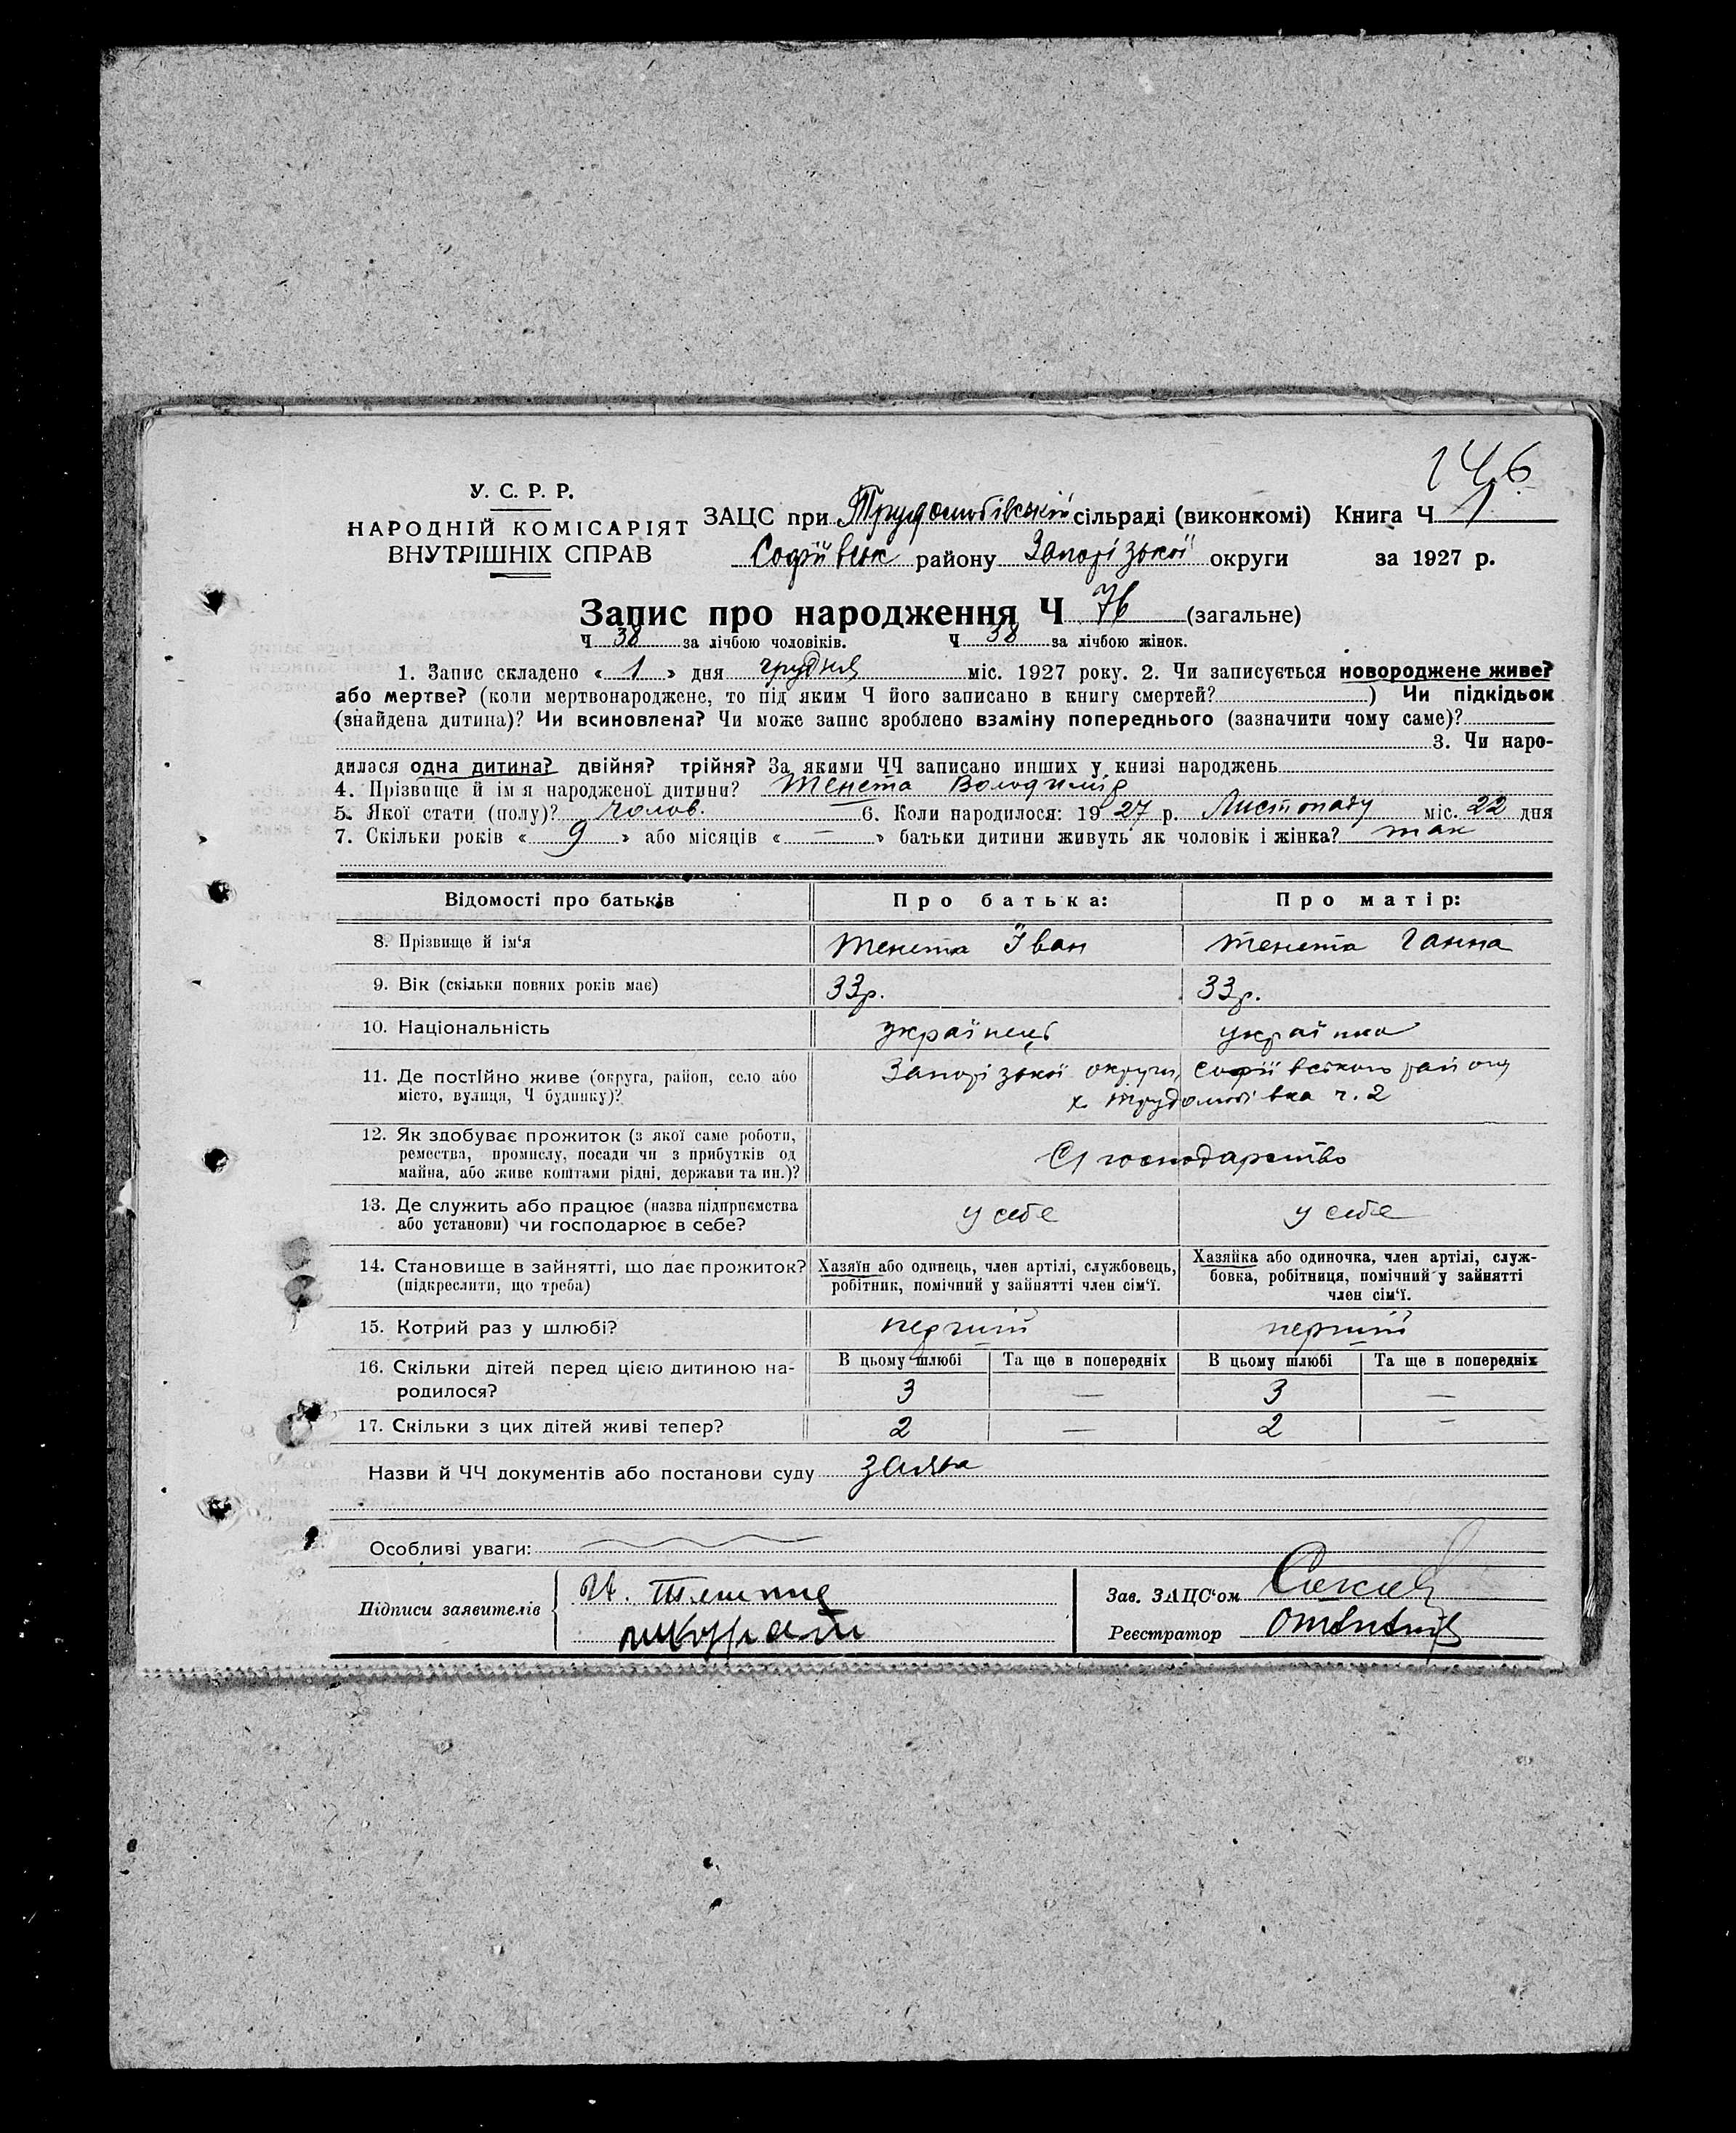 146
У. С. Р. Р.
НАРОДНІЙ КОМІСАРІЯТ
ВНУТРІШНІХ СПРАВ
ЗАЦС при Трудолюбівській сільраді (виконкомі) Книга Ч 1
Софіївськ району Запорізької округи за 1927 р.
Запис про народження Ч 76 (загальне)
Ч 38 за лічбою чоловіків. Ч 38 за лічбою жінок.
1. Запис складено « 1 » дня грудня міс. 1927 року. 2. Чи записується новороджене живе?
або мертве? (коли мертвонароджене, то під яким Ч його записано в книгу смертей? ) Чи підкідьок
(знайдена дитина)? Чи всиновлена? Чи може запис зроблено взаміну попереднього (зазначити чому саме)?
3. Чи наро-
дилася одна дитина? двійня? трійня? За якими ЧЧ записано инших у книзі народжень
4. Прізвище й ім я народженої дитини? Тенета Володимір
5. Якої стати (полу)? чолов. 6. Коли народилося: 19 27 р. Листопаду міс. 22 дня
7. Скільки років « 9 » або місяців « — » батьки дитини живуть як чоловік і жінка? так
Відомості про батьків Про батька: Про матір:
8. Прізвище й ім'я Тенета Іван Тенета Ганна
9. Вік (скільки повних років має) 33р. 33р.
10. Національність українець українка
11. Де постійно живе (округа, район, село або Запорізької округи, Софіївського району
місто, вулиця, Ч будинку)? х. Трудолюбівка ч. 2
12. Як здобуває прожиток (з якої саме роботи,
ремества, промислу, посади чи з прибутків од С/господарство
майна, або живе коштами рідні, держави та ин.)?
13. Де служить або працює (назва підприємства у себе у себе
або установи) чи господарює в себе?
14. Становище в зайнятті, що дає прожиток? Хазяїн або одинець, член артілі, службовець, Хазяйка або одиночка, член артілі, служ-
(підкреслити, що треба) робітник, помічний у зайнятті член сім'ї. бовка, робітниця, помічний у зайнятті
член сім'ї.
15. Котрий раз у шлюбі? перший перший
16. Скільки дітей перед цією дитиною на- В цьому шлюбі Та ще в попередніх В цьому шлюбі Та ще в попередніх
родилося? 3 — 3 —
17. Скільки з цих дітей живі тепер? 2 — 2 —
Назви й ЧЧ документів або постанови суду заява
Особливі уваги:
Підписи заявителів
Зав. ЗАЦС'ом
Реєстратор